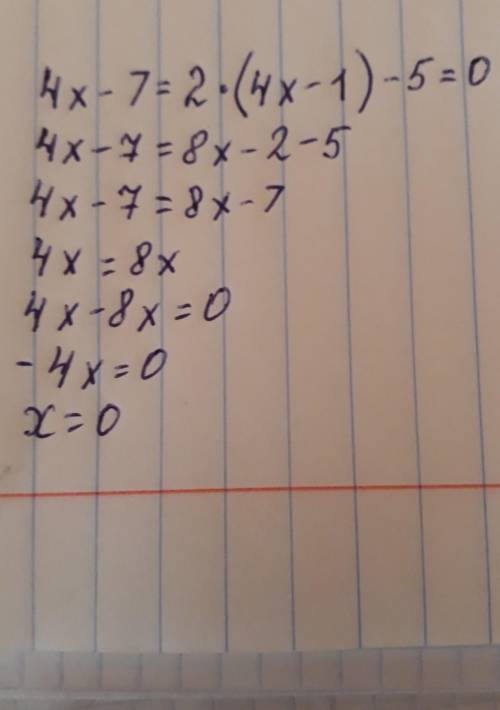 4x-7=2·(4x-1)-5=0
4x-7=8x-2-5
4x-7=8x-7
4x=8x
4x-8x=0
-4x=0
x=0